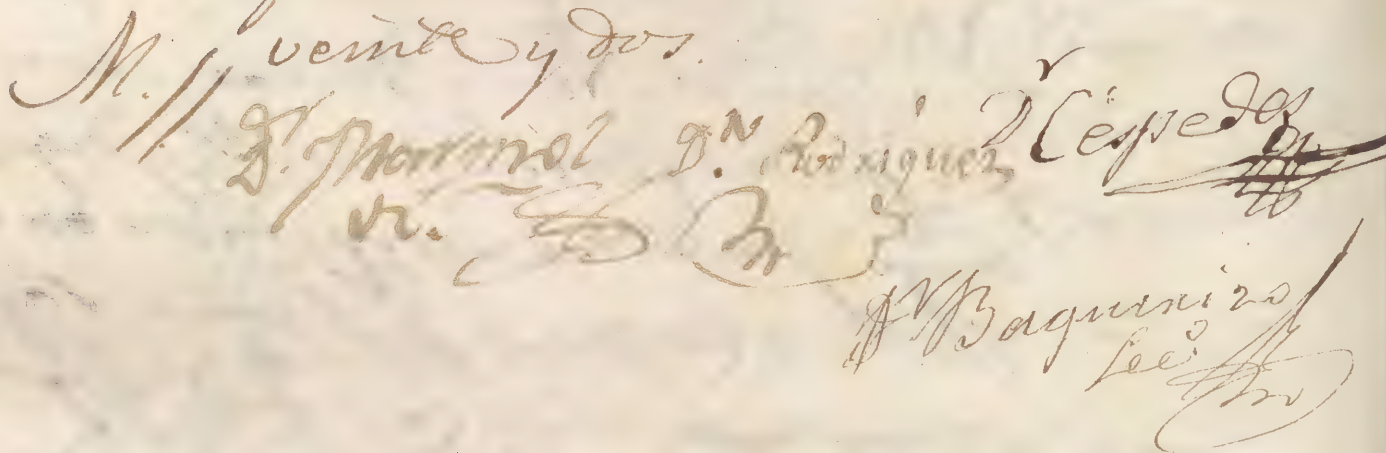 M. // veinte y dos.
Dr. Marmol Dn. Rodriguez Dr Céspedes
Dr Baqueriro
Seco